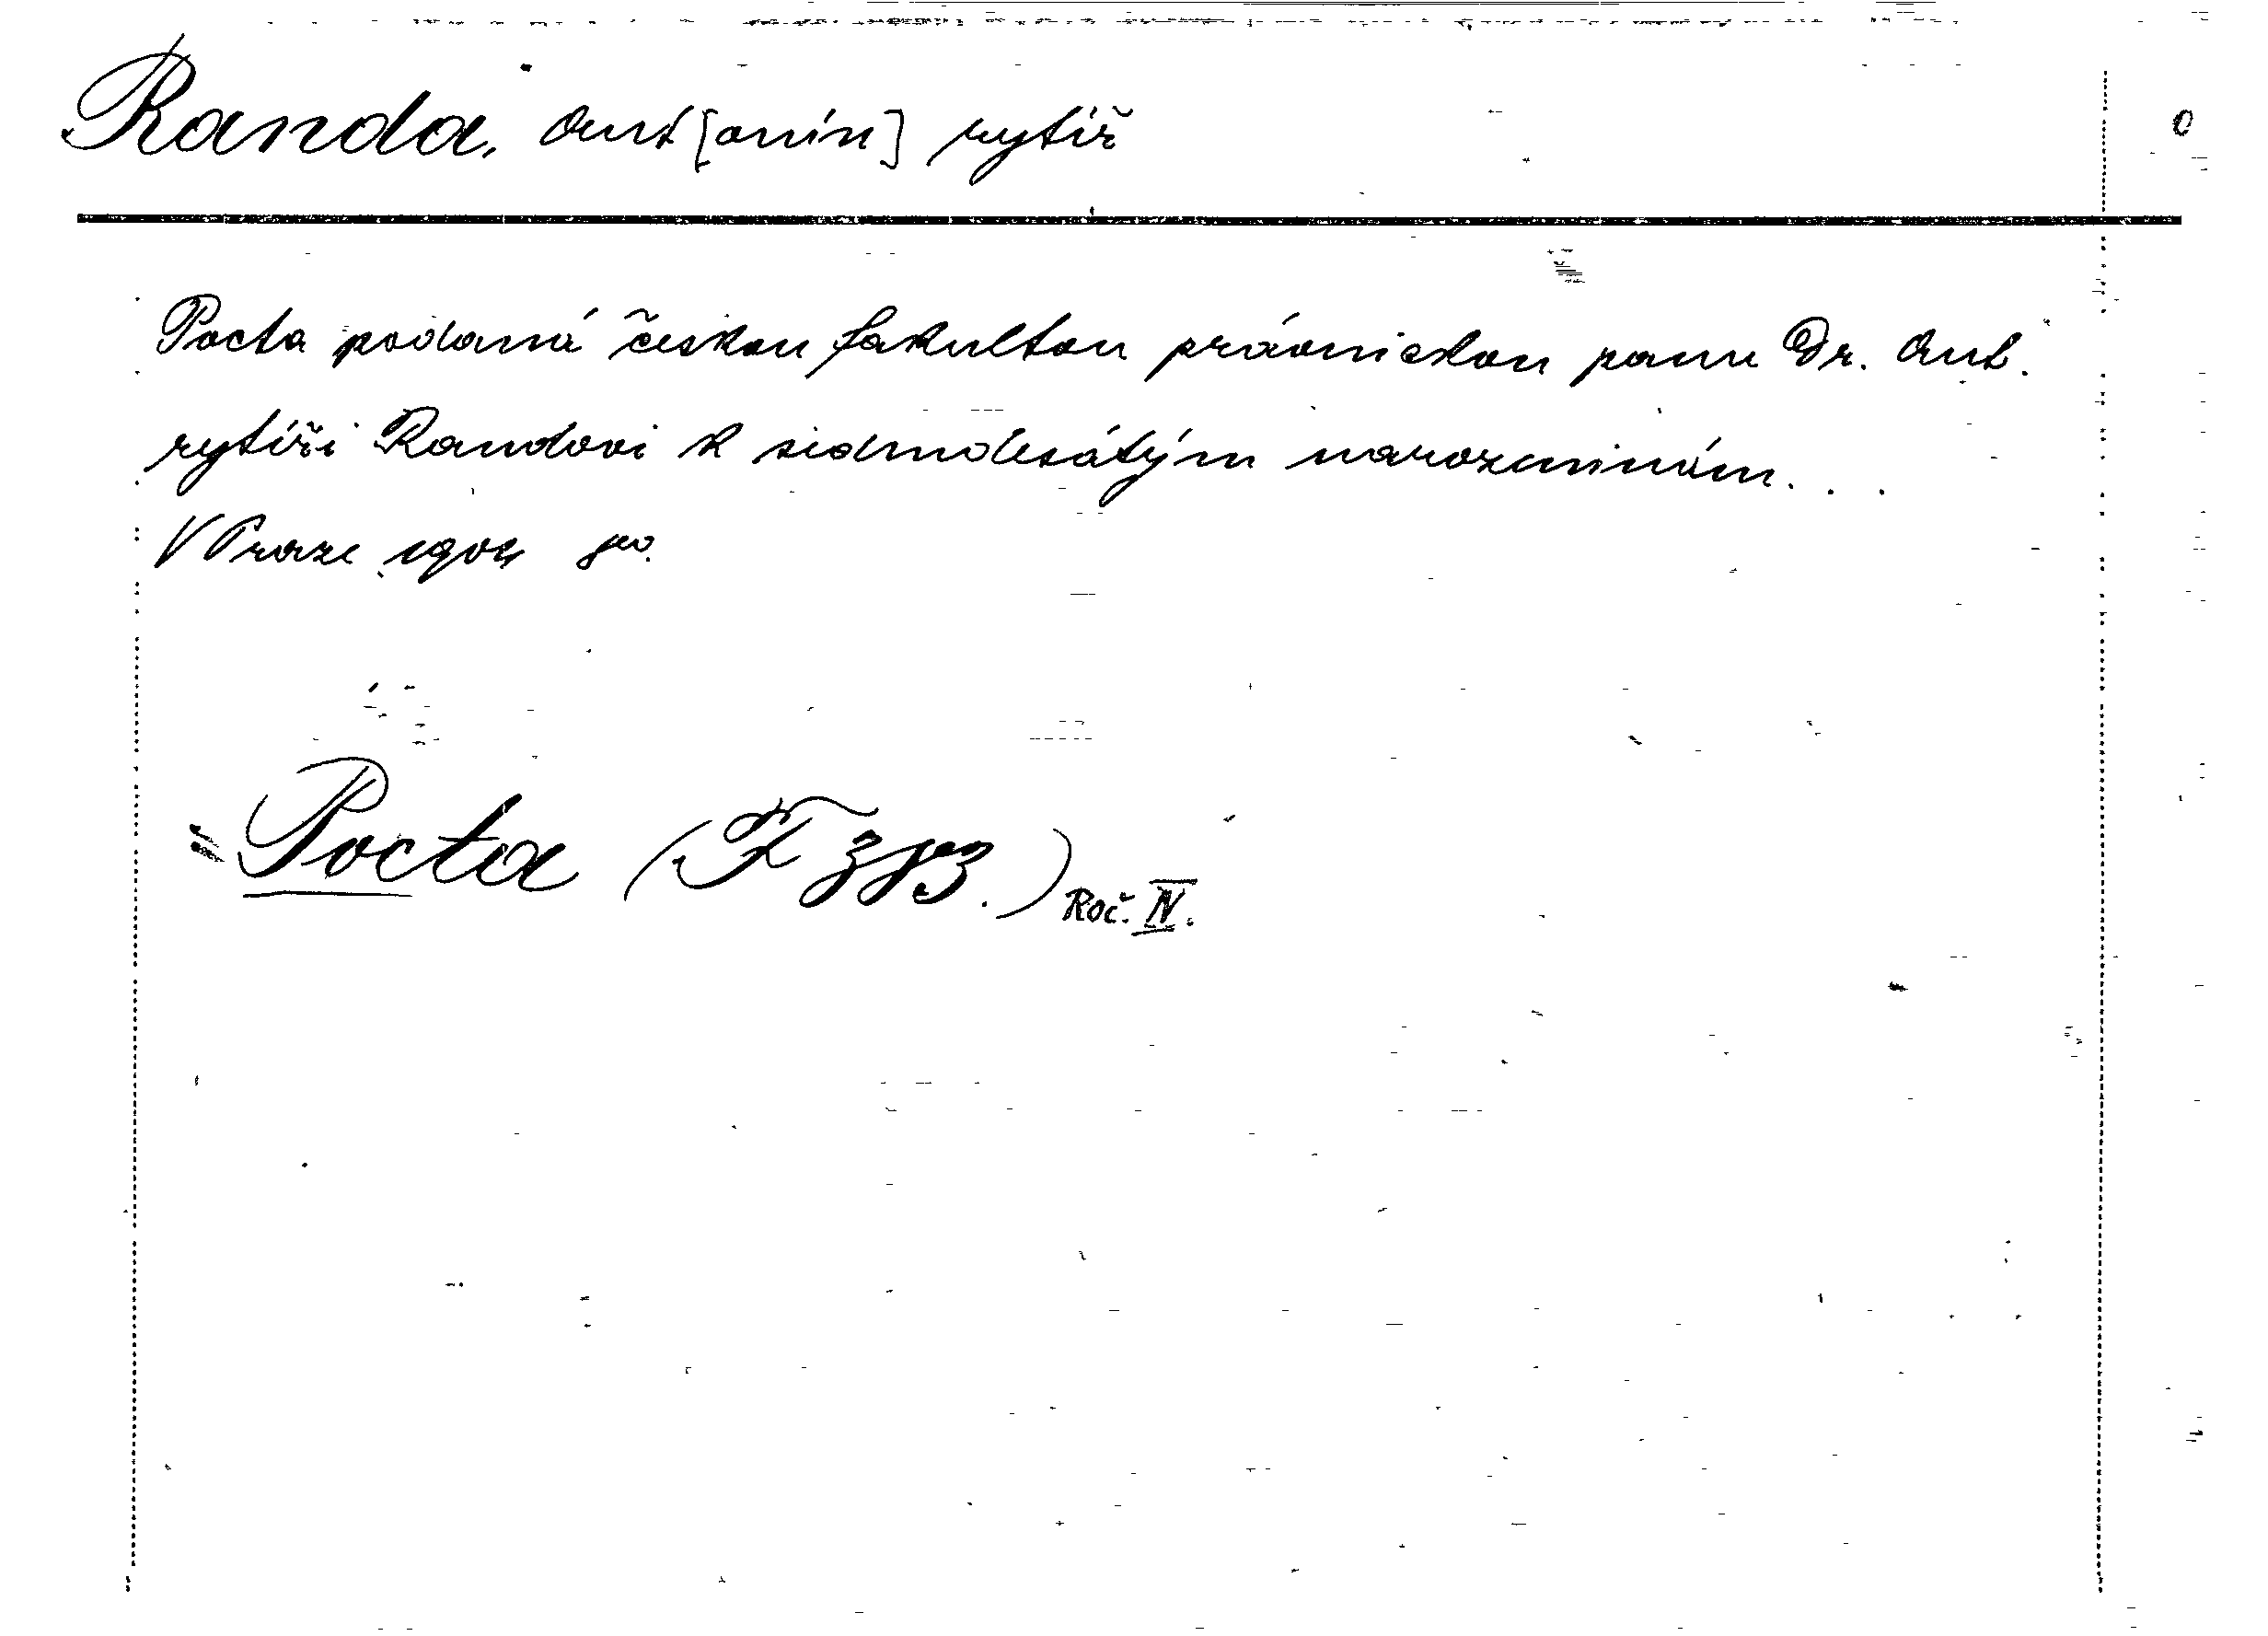 Randa, Ant[onín] rytíř
Pocta podaná českou fakultou právnickou panu Dr. Ant.
rytíři Randovi k sedmdesátým narozeninám...
V Praze 1904 8º.
= Pocta (F 393.) Roč. IV.